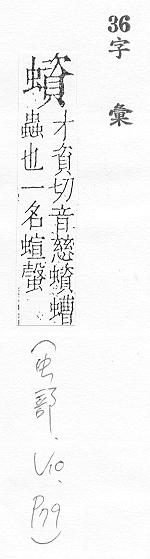 36字彙
蠀
才資切音慈蠀螬
蟲也一名蝖螜
(虫部.V10.P79)